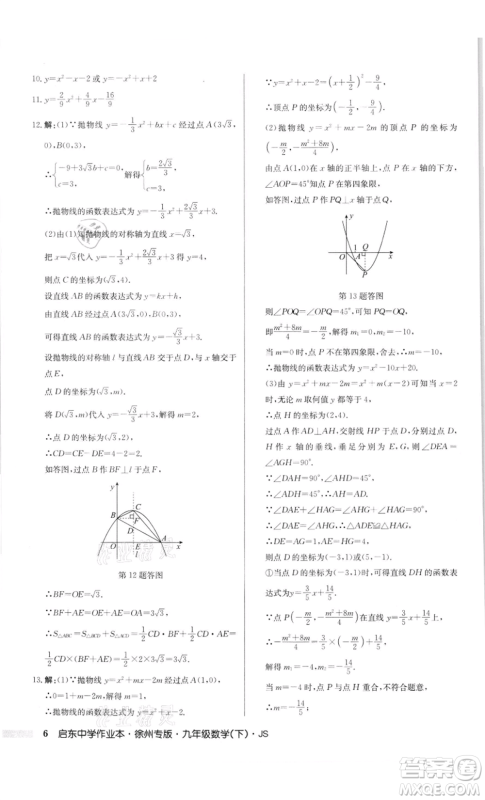 10. y=x²-x-2 或 y=-x²-x+2
11. y=2/9x²+4/9x-16/9
12. 解:(1)∵抛物线 y=-1/3x²+bx+c 经过点 A(3√3,
0),B(0,3),
∴{-9+3√3b+c=0, c=3, 解得{b=2√3/3, c=3.
∴抛物线的函数表达式为 y=-1/3x²+2√3/3x+3.
(2)由(1)知抛物线的对称轴为直线 x=√3,
把 x=√3代入 y=-1/3x²+2√3/3x+3,得 y=4,
则点 C 的坐标为(√3,4).
设直线 AB 的函数表达式为 y=kx+s.
∵直线 AB 经过点 A(3√3,0),B(0,3),
可得直线 AB 的函数表达式为 y=-√3/3x+3.
设抛物线的对称轴 l 与直线 AB 交于点 D,
设点 D 的坐标为(√3,m),
将 D(√3,m)代入 y=-√3/3x+3,解得 m=2,
∴点 D 的坐标为(√3,2).
∴CD=CE-DE=2.
如答图,过点 B 作 BF⊥l 于点 F,
y
C
B
F
D
O
E
A
x
l
第 12 题答图
∴BF=OE=√3.
∵BF+AE=OE+AE=OA=3√3,
∴S△ABC=S△BCD+S△ACD=1/2CD·BF+1/2CD·AE=
1/2CD(BF+AE)=1/2×2×3√3=3√3.
13. 解:(1)∵抛物线 y=x²+mx-2m 经过点 A(1,0),
∴0=1+m-2m,解得 m=1,
∴抛物线的函数表达式为 y=x²+x-2.
∵y=x²+x-2=(x+1/2)²-9/4,
∴顶点 P 的坐标为(-1/2,-9/4).
(2)∵抛物线 y=x²+mx-2m 的顶点 P 的坐标为
(-m/2,-m²+8m/4),
由点 A 在 x 轴的正半轴上,点 P 在 x 轴的下方,
∠AOP=45°,知点 P 在第四象限.
如答图,过点 P 作 PQ⊥x 轴于点 Q,
y
A
Q
O
1
x
P
第 13 题答图
则∠POQ=∠OPQ=45°,可知 PQ=OQ,
即m²+8m/4=-m/2,解得 m₁=0,m₂=-10,
当 m=0时,点 P 不在第四象限,舍去,
∴m=-10,
∴抛物线的函数表达式为 y=x²-10x+20.
(3)由 y=x²+mx-2m=(x-2)m+x²可知当 x=2
时,无论 m 取何值时 y 都等于 4,
∴点 H 的坐标为(2,4).
过点 A 作 AD⊥AH,交射线 HP 于点 D,分别过点
D,H 作 x 轴的垂线,垂足分别为 E,G,则∠DEA=
∠AGH=90°.
∵∠DAH=90°,∠AHD=45°,
∴∠ADH=45°,∴AH=AD.
∵∠DAE+∠HAG=∠AHG+∠HAG=90°,
∴∠DAE=∠AHG,∴△ADE≌△HAG,
∴DE=AG=1,AE=HG=4,
∴点 D 的坐标为(-3,1)或(5,-1).
①当点 D 的坐标为(-3,1)时,可得直线 DH 的函数表
达式为 y=3/5x+14/5.
∵点 P(-m/2,-m²+8m/4)在直线 y=3/5x+14/5上,
∴-m²+8m/4=3/5×(-m/2)+14/5,
解得 m₁=-4,m₂=-14/5.
6 启东中学作业本·徐州专版·九年级数学(下)·JS